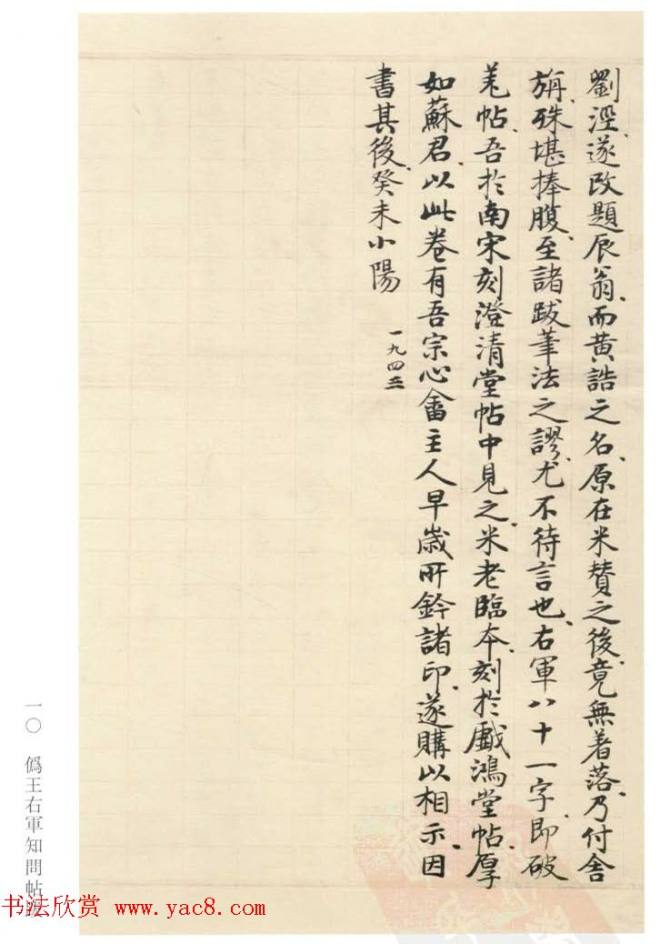 劉涇遂改題辰翁、而黃誥之名、原在米贊之後、竟無着落、乃付舍
旃、殊堪捧腹、至諸跋筆法之謬、尤不待言也、右軍八十一字、即破
羌帖、吾於南宋刻澄清堂帖中見之、米老臨本、刻於戲鴻堂帖、厚
如蘇君、以此卷有吾宗心畬主人早歲所鈐諸印、遂購以相示、因
書其後、癸未小陽
一九四三
一〇 偽王右軍知問帖
书法欣赏 www.yac8.com